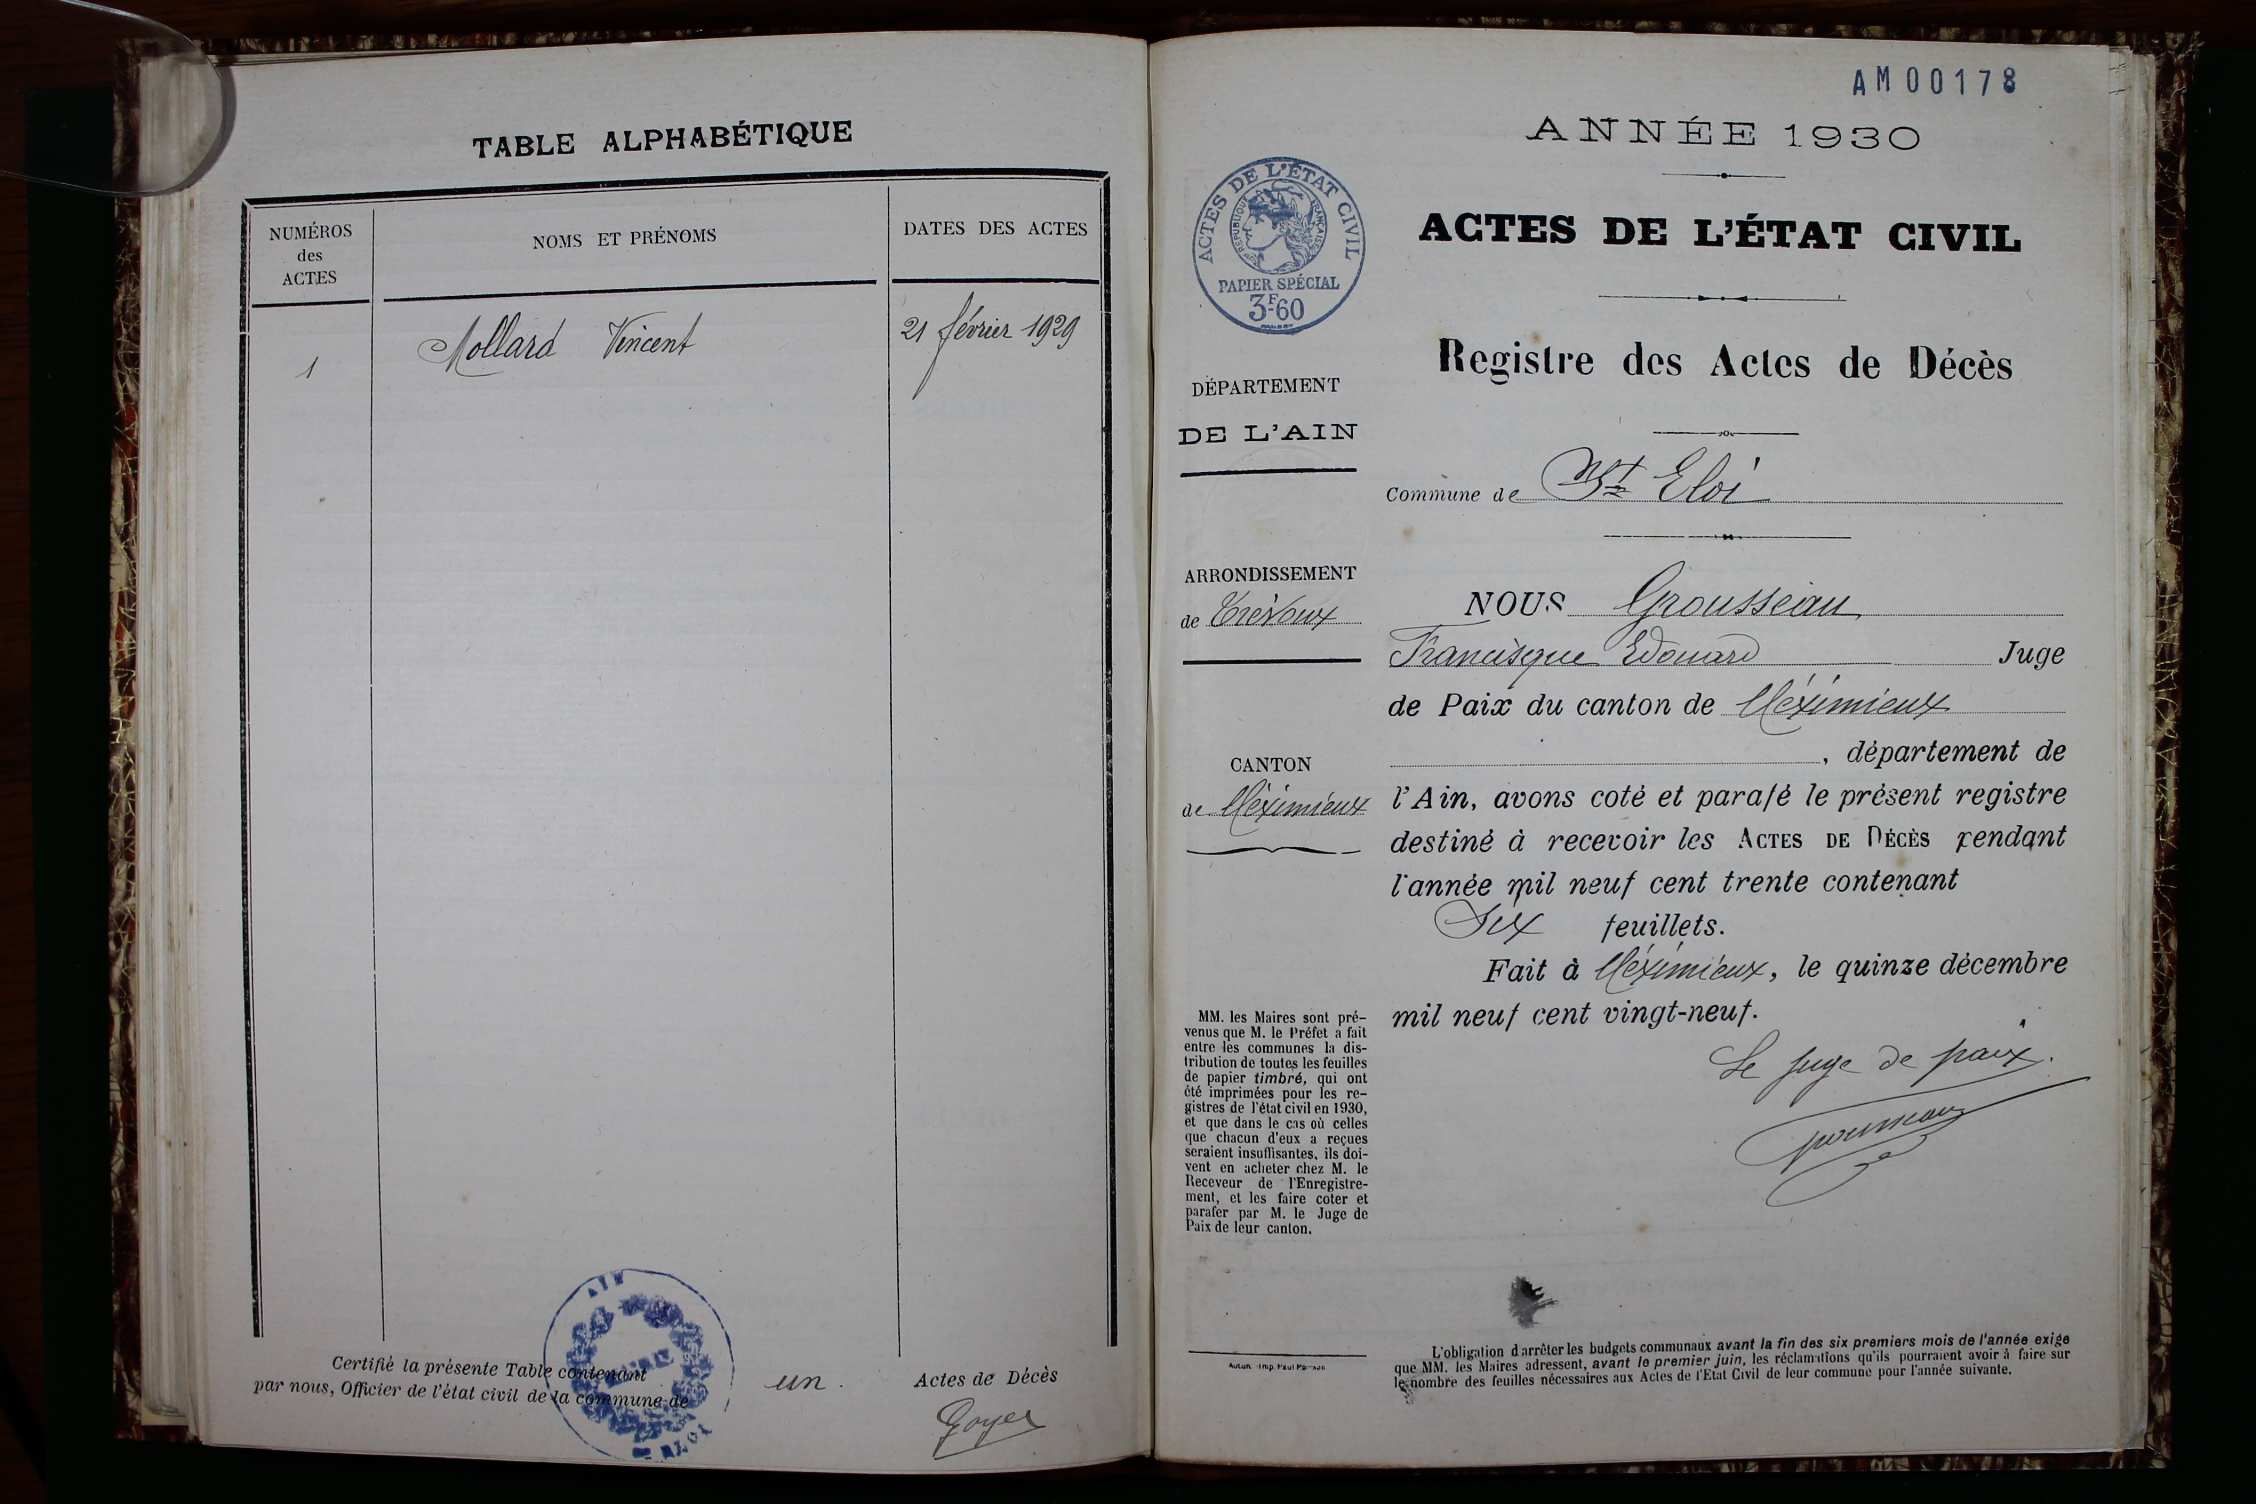 TABLE ALPHABÉTIQUE
NUMÉROS
des
ACTES
NOMS ET PRÉNOMS
DATES DES ACTES
1
Mollard Vincent
21 février 1929
Certifié la présente Table contenant un Actes de Décès
par nous, Officier de l'état civil de la commune de
AIN
MAIRIE
ELOI
Goyer
AM00178
ANNÉE 1930
ACTES DE L'ÉTAT CIVIL
RÉPUBLIQUE FRANÇAISE
PAPIER SPÉCIAL
3F-60
ACTES DE L'ÉTAT CIVIL
Registre des Actes de Décès
DÉPARTEMENT
DE L'AIN
Commune de St Eloi
ARRONDISSEMENT
de Trévoux
CANTON
de Méximieux
NOUS Grousseau
Francisque Edouard Juge
de Paix du canton de Méximieux
, département de
l'Ain, avons coté et parafé le présent registre
destiné à recevoir les ACTES DE DÉCÈS pendant
l'année mil neuf cent trente contenant
Six feuillets.
Fait à Méximieux, le quinze décembre
mil neuf cent vingt-neuf.
Le Juge de paix.
MM. les Maires sont pré-
venus que M. le Préfet a fait
entre les communes la dis-
tribution de toutes les feuilles
de papier timbré, qui ont
été imprimées pour les re-
gistres de l'état civil en 1930,
et que dans le cas où celles
que chacun d'eux a reçues
seraient insuffisantes, ils doi-
vent en acheter chez M. le
Receveur de l'Enregistre-
ment, et les faire coter et
parafer par M. le Juge de
Paix de leur canton.
Autun. Imp. Paul
L'obligation d'arrêter les budgets communaux avant la fin des six premiers mois de l'année exige
que MM. les Maires adressent, avant le premier juin, les réclamations qu'ils pourraient avoir à faire sur
le nombre des feuilles nécessaires aux Actes de l'Etat Civil de leur commune pour l'année suivante.